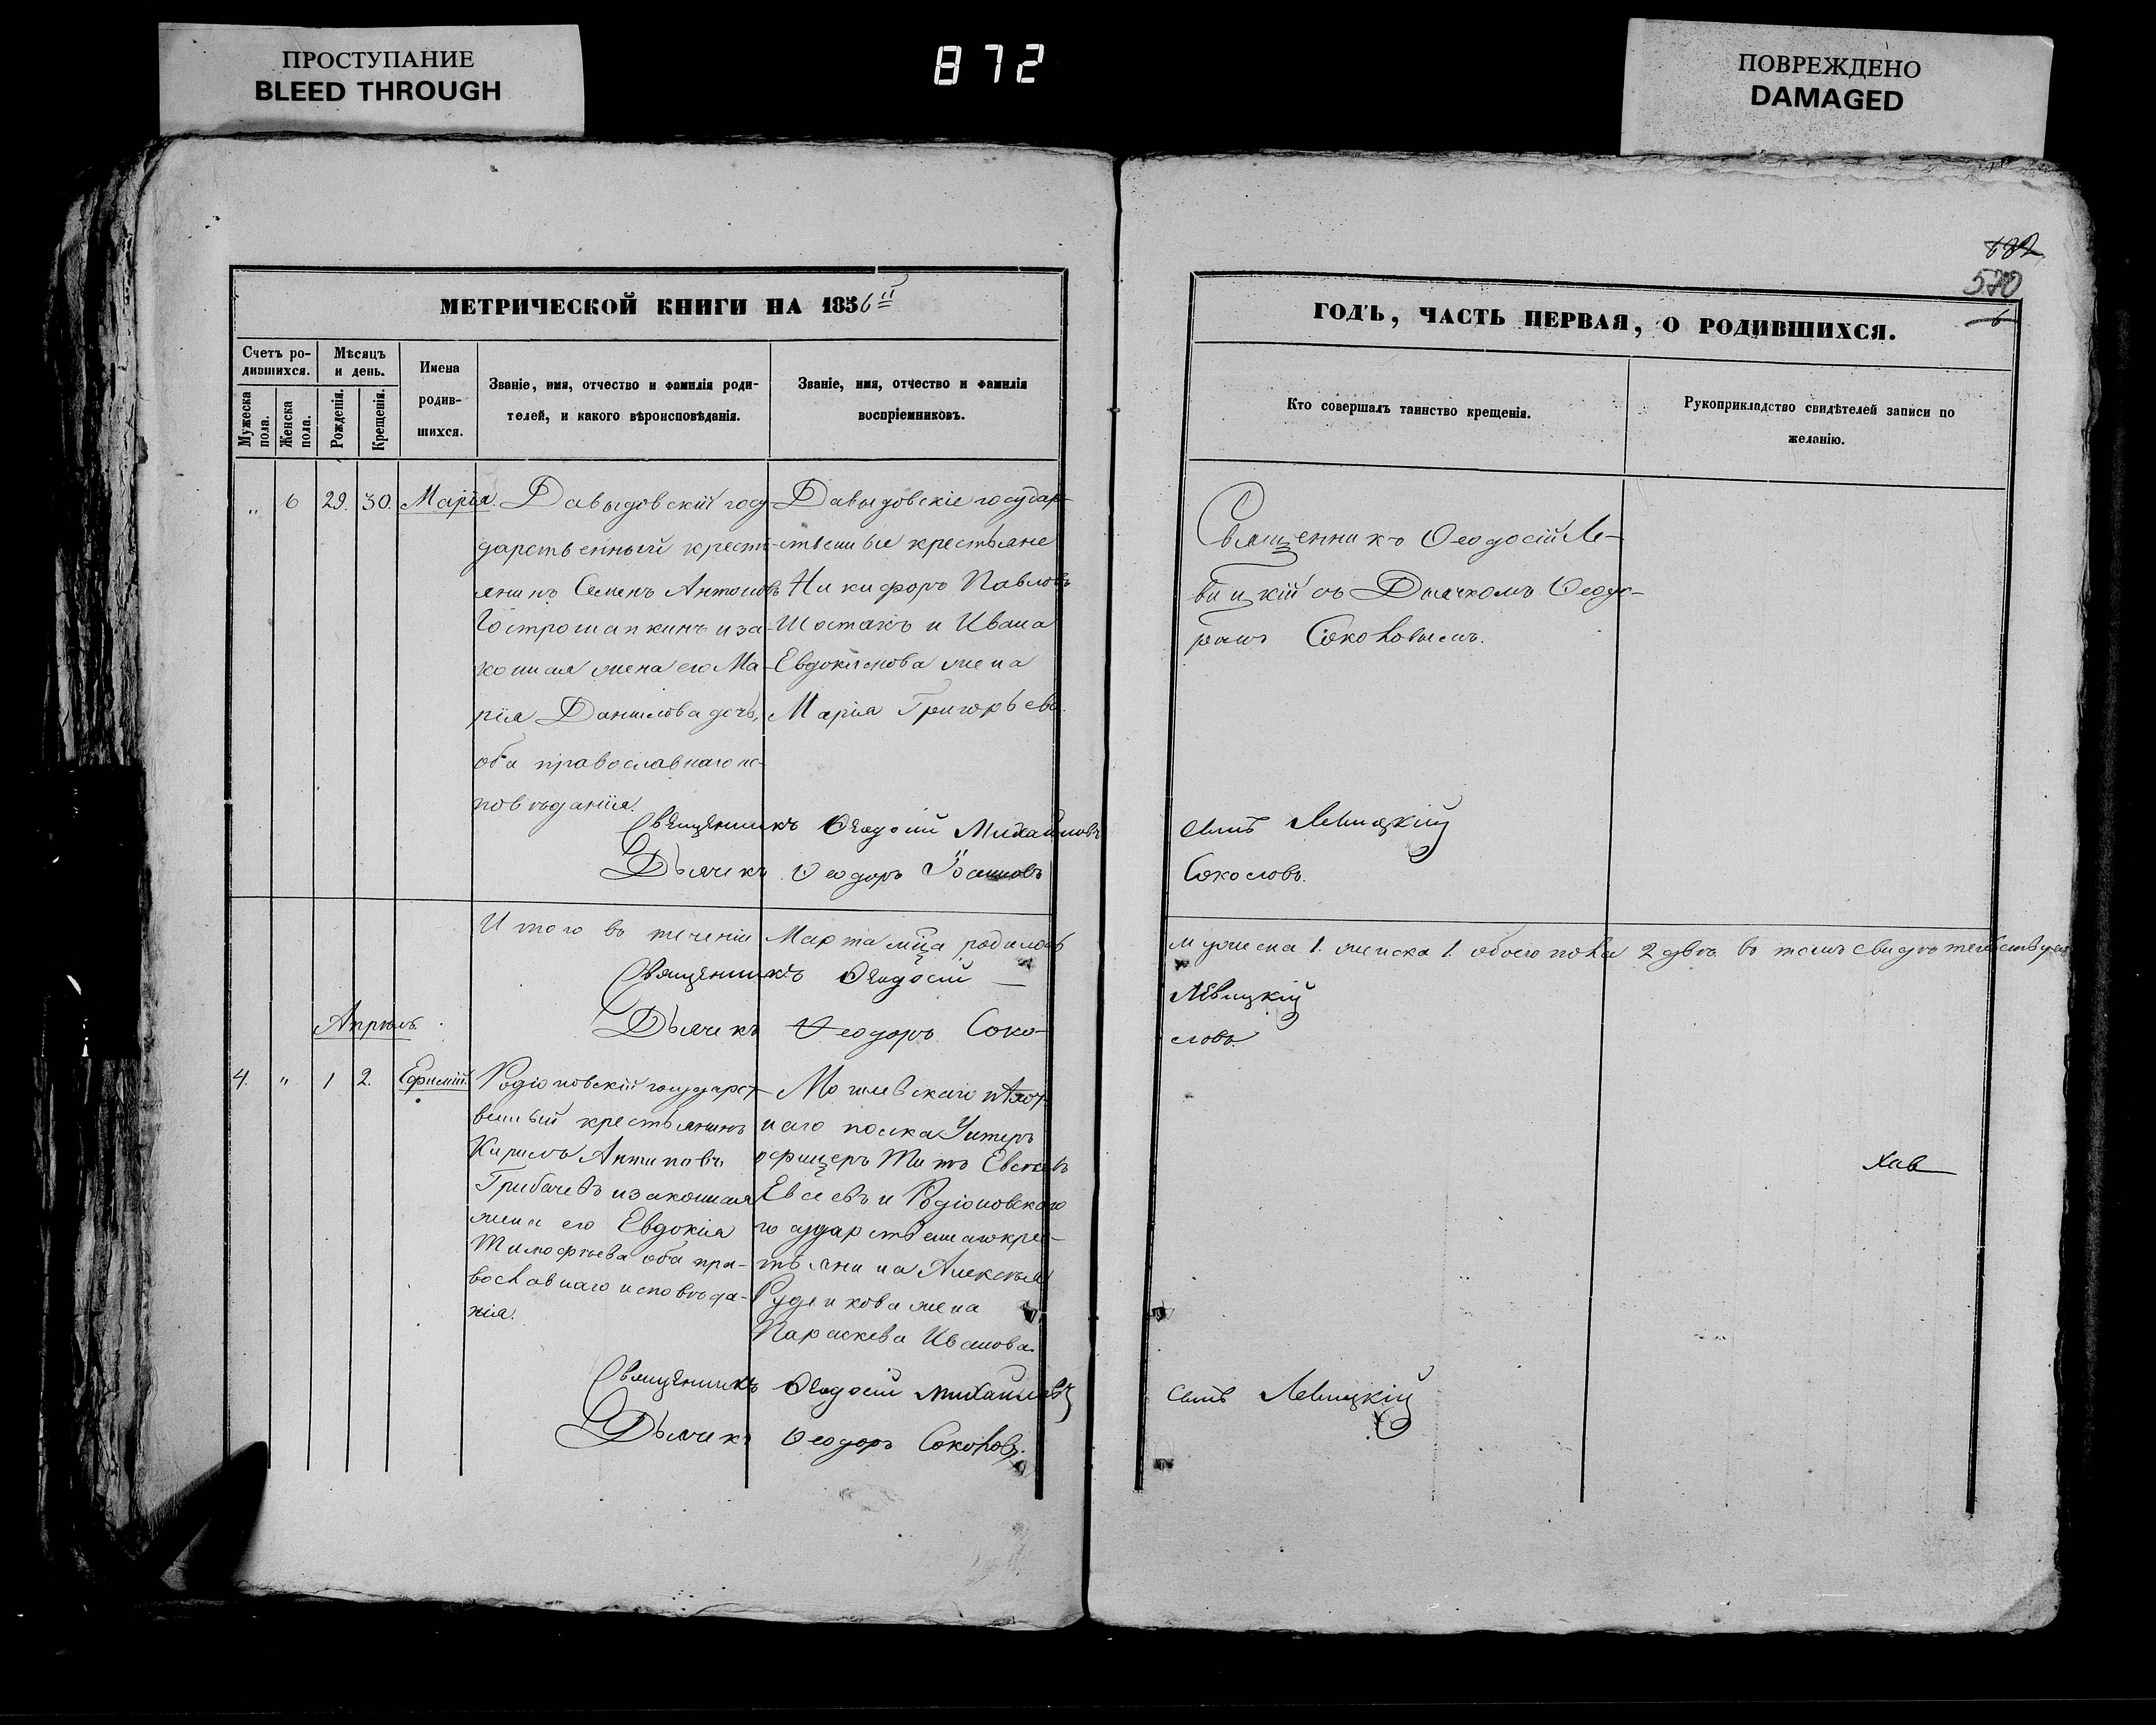 ПРОСТУПАНИЕ
BLEED THROUGH
872
ПОВРЕЖДЕНО
DAMAGED
570
6
МЕТРИЧЕСКОЙ КНИГИ НА 1856 й
Счетъ ро-
дившихся.
Мужеска
пола.
Женска
пола.
Мѣсяцъ
и день.
Рожденія.
Крещенія.
Имена
родив-
шихся.
Званіе, имя, отчество и фамилія роди-
телей, и какого вѣроисповѣданія.
Званіе, имя, отчество и фамилія
воспріемниковъ.
ГОДЪ, ЧАСТЬ ПЕРВАЯ, О РОДИВШИХСЯ.
Кто совершалъ таинство крещенія.
Рукоприкладство свидѣтелей записи по
желанію.
„ 6 29. 30. Марія.
Давыдовскій госу
дарственный кресть-
янинъ Семенъ Антоновъ
Гострошапкинъ и за-
конная жена его Ма-
рія Данилова дочь,
оба православнаго ис-
повѣданія.
Давыдовскіе государ-
ственные крестьяне
Никифоръ Павловъ
Шостакъ и Ивана
Евдокимова жена
Марія Григорьева.
Священникъ Ѳеодосій Ле-
вицкій съ Дьячкомъ Ѳеодо-
ромъ Соколовымъ.
Священникъ Ѳеодосій Михайловъ
сынъ Левицкій
Дьячекъ Ѳеодоръ
Соколовъ.
Итого въ теченіи Марта мца родилось
мужеска 1. женска 1. обоего пола 2 двѣ въ томъ свидѣтельствуемъ
Священникъ Ѳеодосій —
Левицкій
Дьячекъ Ѳеодоръ Соко-
ловъ.
Апрѣль.
4. „ 1 2. Ефимій.
Родіоновскій государст-
венный крестьянинъ
Кирилъ Антиповъ
Грибачевъ и законная
жена его Евдокія
Тимофѣева оба пра-
вославнаго исповѣда-
нія.
Могилевскаго пѣхот-
наго полка Унтеръ
офицеръ Титъ
Евсеевъ и Родіоновскаго
государственнаго кре-
стьянина Алексѣя
Руденкова жена
Параскева Иванова.
Священникъ Ѳеодосій Михайловъ
сынъ Левицкій
Дьячекъ Ѳеодоръ Соколовъ.